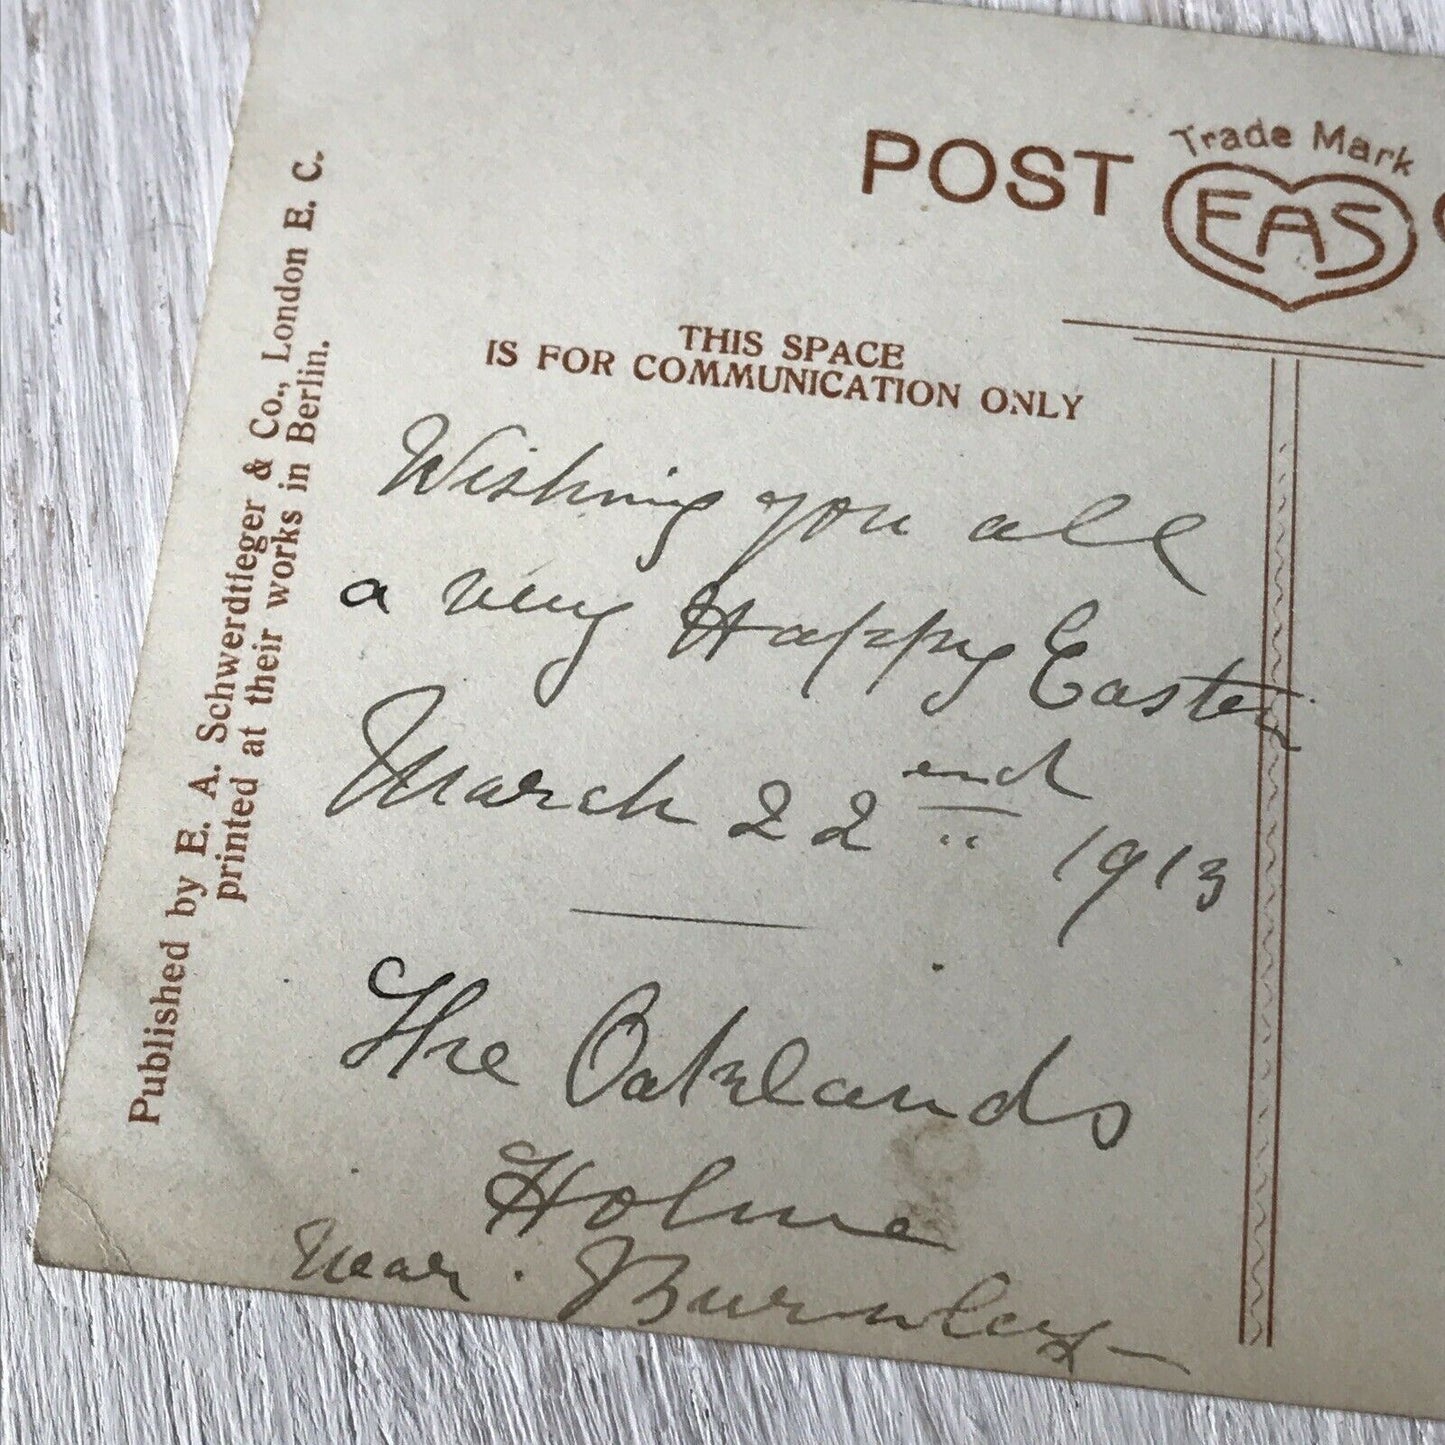 Published by E. A. Schwerdtfeger & Co., London E. C.
printed at their works in Berlin.
POST
Trade Mark
EAS
THIS SPACE
IS FOR COMMUNICATION ONLY
Wishing you all
a very Happy Easter
March 22nd 1913
The Oaklands
Holme
Near Burnley